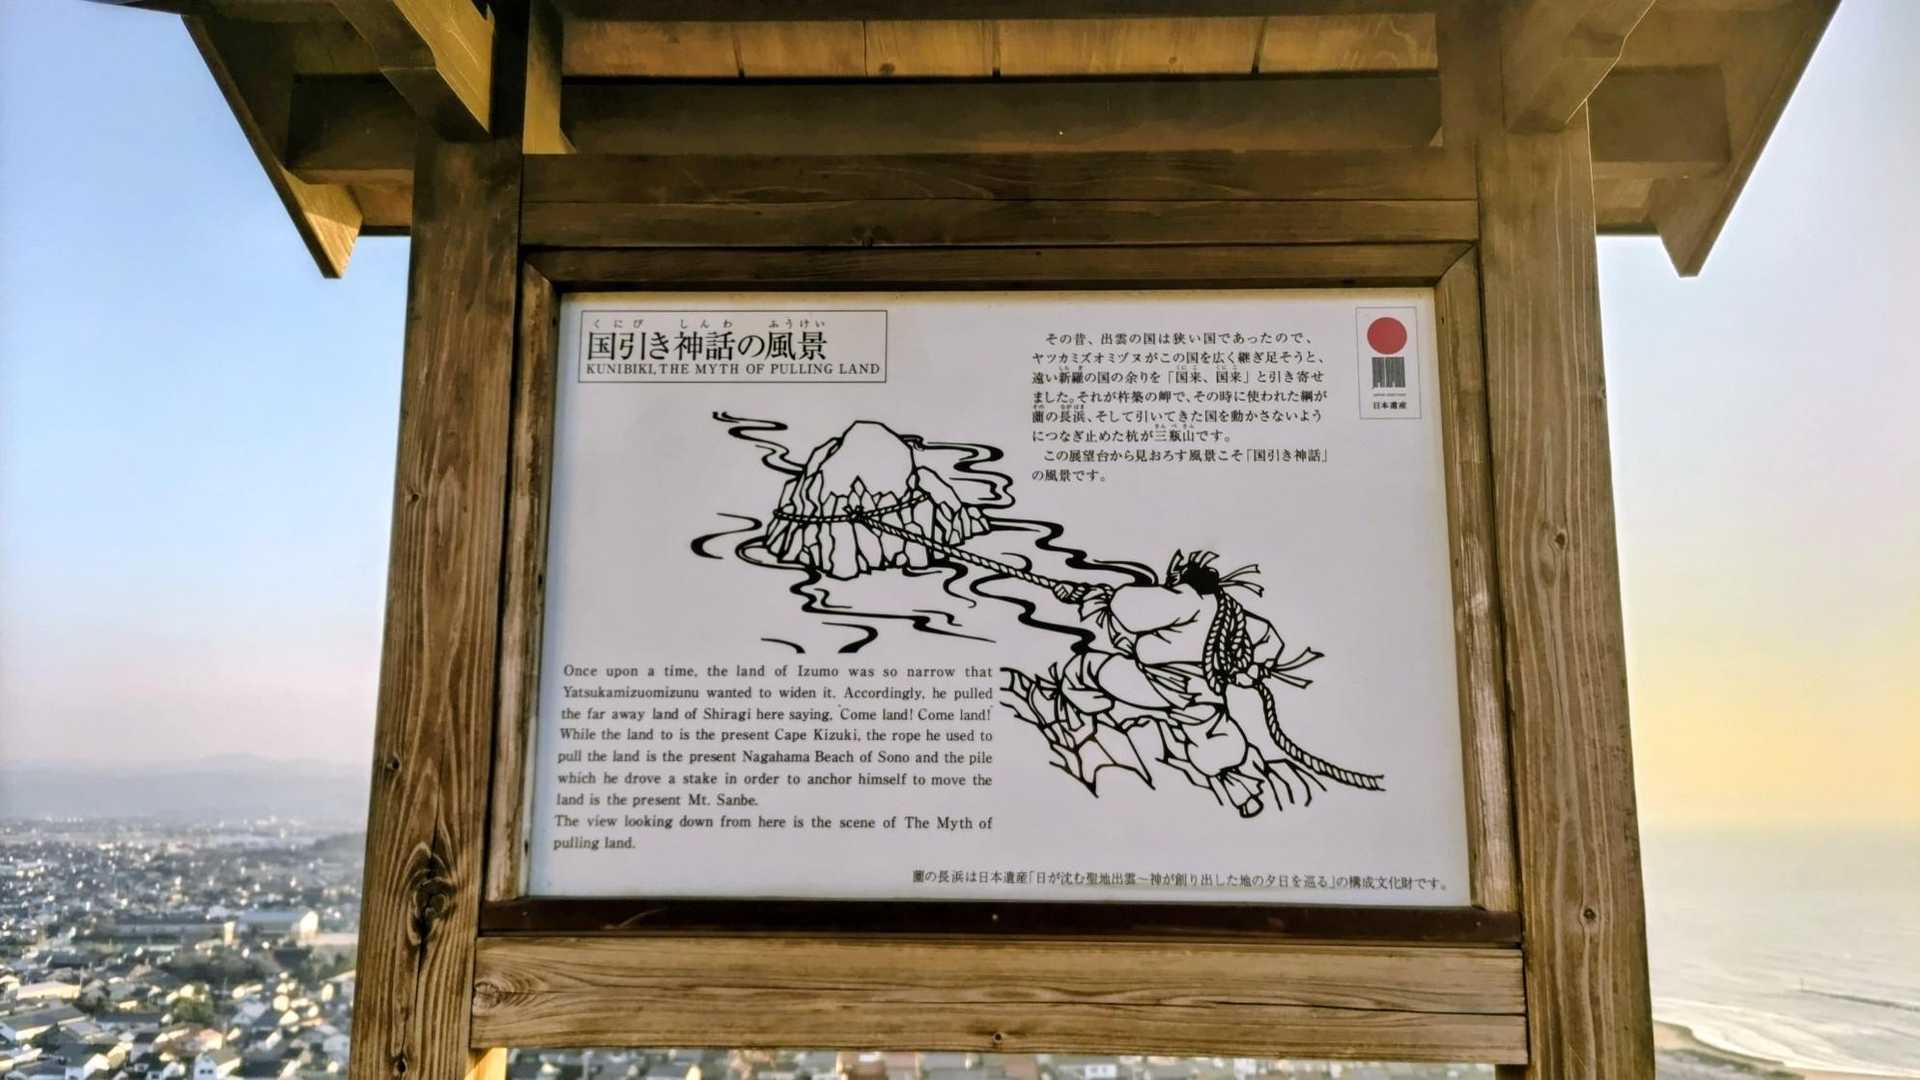 くにび しんわ ふうけい
国引き神話の風景
KUNIBIKI,THE MYTH OF PULLING LAND
その昔、出雲の国は狭い国であったので、
ヤツカミズオミヅヌがこの国を広く継ぎ足そうと、
しらぎ くにこ くにこ
遠い新羅の国の余りを「国来、国来」と引き寄せ
ました。それが杵築の岬で、その時に使われた綱が
その ながはま
薗の長浜、そして引いてきた国を動かさないよう
さんべさん
につなぎ止めた杭が三瓶山です。
この展望台から見おろす風景こそ「国引き神話」
の風景です。
日本遺産
Once upon a time, the land of Izumo was so narrow that
Yatsukamizuomizunu wanted to widen it. Accordingly, he pulled
the far away land of Shiragi here saying, "Come land! Come land!"
While the land to is the present Cape Kizuki, the rope he used to
pull the land is the present Nagahama Beach of Sono and the pile
which he drove a stake in order to anchor himself to move the
land is the present Mt. Sanbe.
The view looking down from here is the scene of The Myth of
pulling land.
薗の長浜は日本遺産「日が沈む聖地出雲〜神が創り出した地の夕日を巡る」の構成文化財です。